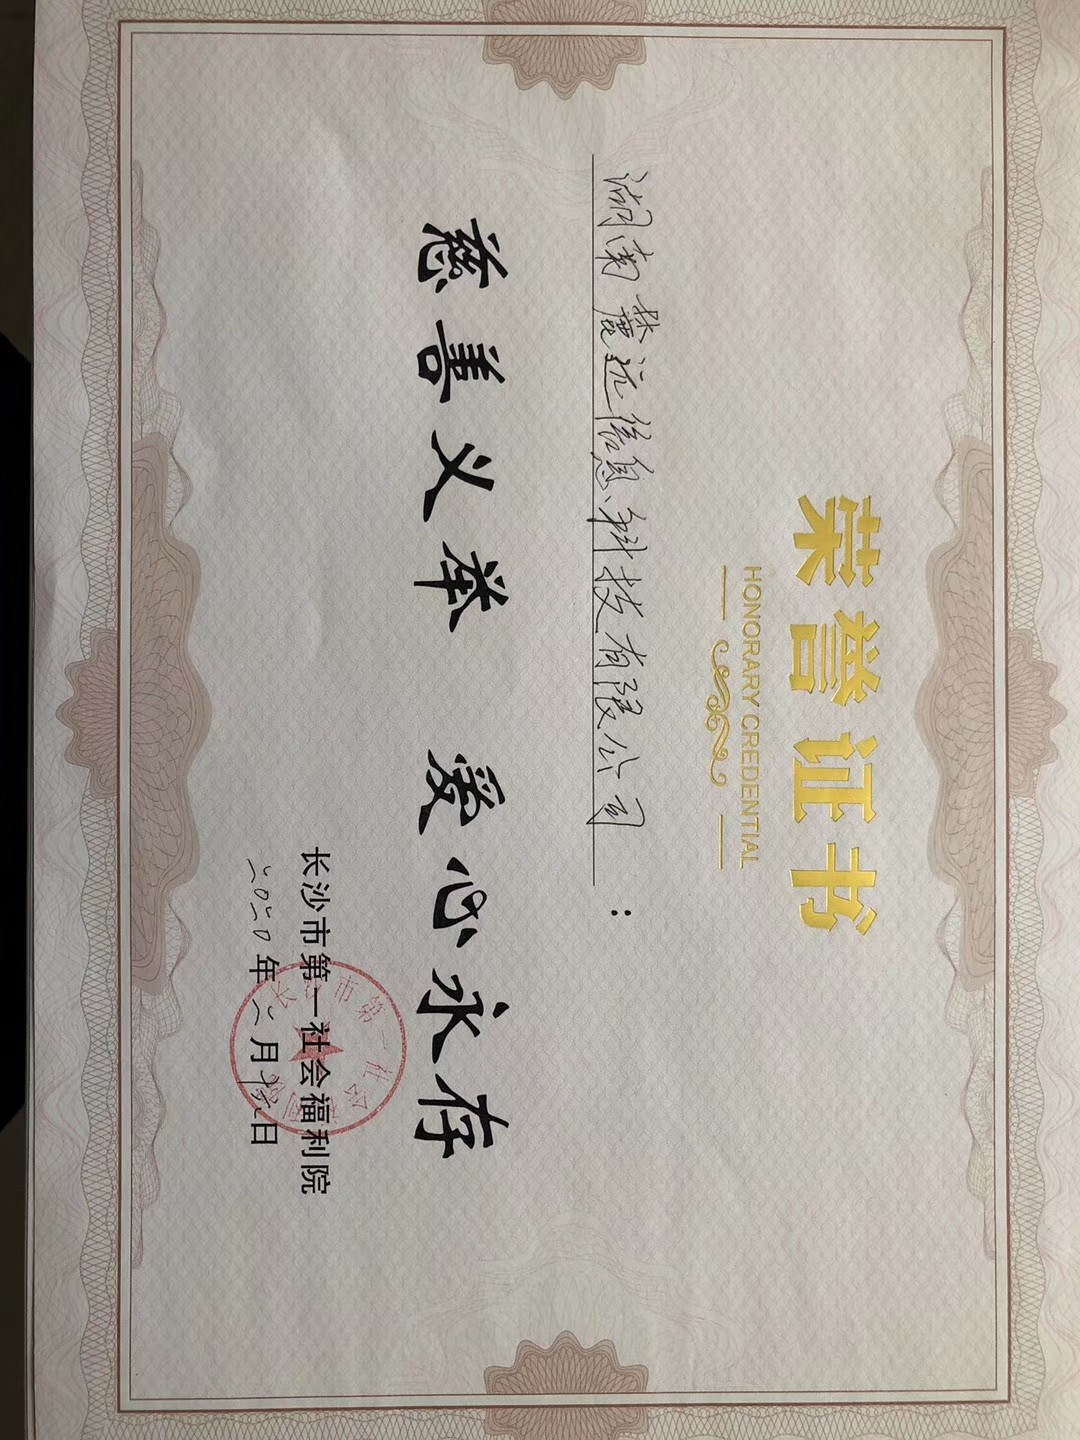 荣誉证书
HONORARY CREDENTIAL
湖南楚远信息科技有限公司：
慈善义举 爱心永存
长沙市第一社会福利院
二〇二〇年二月 日